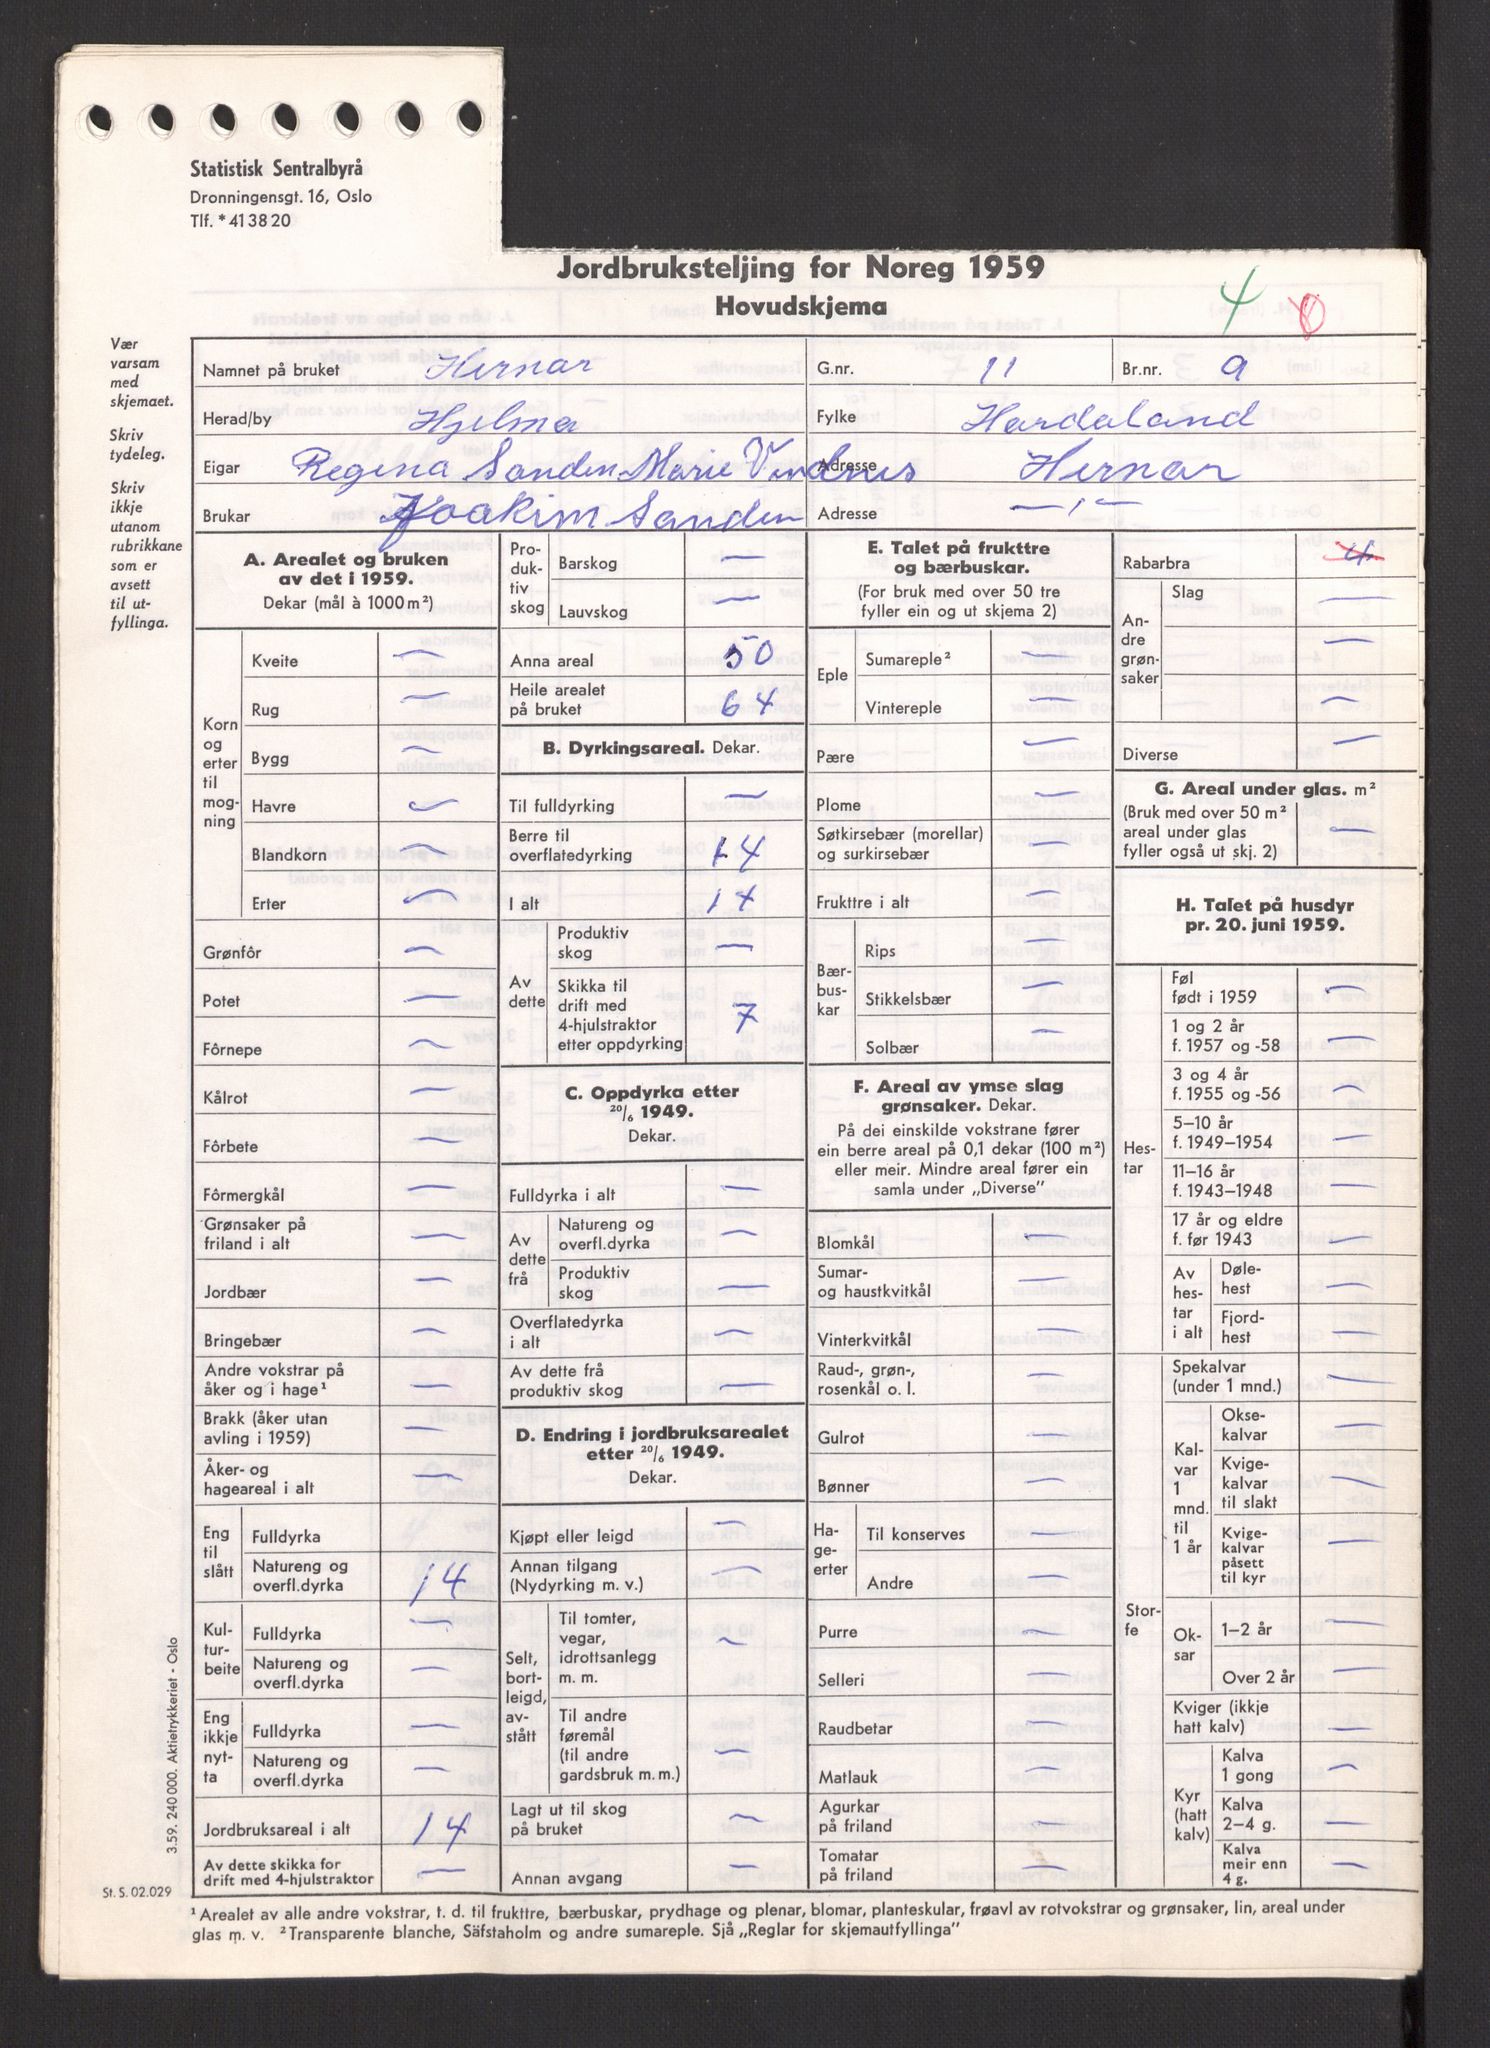 Statistisk Sentralbyrå
Dronningensgt. 16, Oslo
Tlf. *41 38 20
Jordbruksteljing for Noreg 1959
Hovudskjema
4 8
Vær
varsam
med
skjemaet.
Skriv
tydeleg.
Skriv
ikkje
utanom
rubrikkane
som er
avsett
til ut-
fyllinga.
Namnet på bruket Hernar G.nr. 11 Br.nr. 9
Herad/by Hjelma Fylke Hordaland
Eigar Regina Sanden Marie Adresse Hernar
Brukar Joakim Sanden Adresse — " —
A. Arealet og bruken
av det i 1959.
Dekar (mål à 1000 m²)
Korn
og
erter
til
mog-
ning
Kveite —
Rug —
Bygg —
Havre —
Blandkorn —
Erter —
Grønfôr —
Potet —
Fôrnepe —
Kålrot —
Fôrbete —
Fôrmergkål —
Grønsaker på
friland i alt —
Jordbær —
Bringebær —
Andre vokstrar på
åker og i hage¹ —
Brakk (åker utan
avling i 1959) —
Åker- og
hageareal i alt —
Eng
til
slått
Fulldyrka —
Natureng og
overfl.dyrka 14
Kul-
tur-
beite
Fulldyrka —
Natureng og
overfl.dyrka —
Eng
ikkje
nyt-
ta
Fulldyrka —
Natureng og
overfl.dyrka —
Jordbruksareal i alt 14
Av dette skikka for
drift med 4-hjulstraktor —
Pro-
duk-
tiv
skog
Barskog —
Lauvskog —
Anna areal 50
Heile arealet
på bruket 64
B. Dyrkingsareal. Dekar.
Til fulldyrking —
Berre til
overflatedyrking 14
I alt 14
Av
dette
Produktiv
skog —
Skikka til
drift med
4-hjulstraktor
etter oppdyrking 7
C. Oppdyrka etter
20/6 1949.
Dekar.
Fulldyrka i alt —
Av
dette
frå
Natureng og
overfl.dyrka —
Produktiv
skog —
Overflatedyrka
i alt —
Av dette frå
produktiv skog —
D. Endring i jordbruksarealet
etter 20/6 1949.
Dekar.
Kjøpt eller leigd —
Annan tilgang
(Nydyrking m. v.) —
Selt,
bort-
leigd,
av-
stått
Til tomter,
vegar,
idrottsanlegg
m. m. —
Til andre
føremål
(til andre
gardsbruk m. m.) —
Lagt ut til skog
på bruket —
Annan avgang —
E. Talet på frukttre
og bærbuskar.
(For bruk med over 50 tre
fyller ein og ut skjema 2)
Eple
Sumareple² —
Vintereple —
Pære —
Plome —
Søtkirsebær (morellar)
og surkirsebær —
Frukttre i alt —
Bær-
bus-
kar
Rips —
Stikkelsbær —
Solbær —
F. Areal av ymse slag
grønsaker. Dekar.
På dei einskilde vokstrane fører
ein berre areal på 0,1 dekar (100 m²)
eller meir. Mindre areal fører ein
samla under „Diverse”
Blomkål —
Sumar-
og haustkvitkål —
Vinterkvitkål —
Raud-, grøn-,
rosenkål o. l. —
Gulrot —
Bønner —
Ha-
ge-
erter
Til konserves —
Andre —
Purre —
Selleri —
Raudbetar —
Matlauk —
Agurkar
på friland —
Tomatar
på friland —
Rabarbra 4
An-
dre
grøn-
saker
Slag —
—
—
Diverse —
G. Areal under glas. m²
(Bruk med over 50 m²
areal under glas
fyller også ut skj. 2) —
H. Talet på husdyr
pr. 20. juni 1959.
Hes-
tar
Føl
født i 1959 —
1 og 2 år
f. 1957 og -58 —
3 og 4 år
f. 1955 og -56 —
5–10 år
f. 1949–1954 —
11–16 år
f. 1943–1948 —
17 år og eldre
f. før 1943 —
Av
hes-
tar
i alt
Døle-
hest —
Fjord-
hest —
Stor-
fe
Spekalvar
(under 1 mnd.) —
Kal-
var
1
mnd.
til
1 år
Okse-
kalvar —
Kvige-
kalvar
til slakt —
Kvige-
kalvar
påsett
til kyr —
Ok-
sar
1–2 år —
Over 2 år —
Kviger (ikkje
hatt kalv) —
Kyr
(hatt
kalv)
Kalva
1 gong —
Kalva
2–4 g. —
Kalva
meir enn
4 g. —
3.59. 240 000. Aktietrykkeriet - Oslo
St. S. 02.029
¹ Arealet av alle andre vokstrar, t. d. til frukttre, bærbuskar, prydhage og plenar, blomar, planteskular, frøavl av rotvokstrar og grønsaker, lin, areal under
glas m. v. ² Transparente blanche, Säfstaholm og andre sumareple. Sjå „Reglar for skjemautfyllinga”